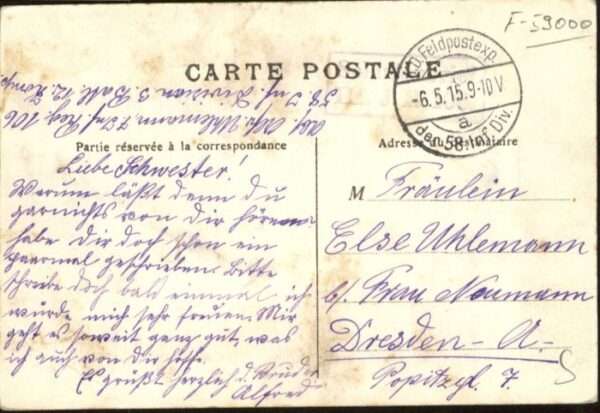 F-59000
CARTE POSTALE
K.D. Feldpostexp.
-6.5.15.9-10V
a
der 58. Inf. Div.
58. Inf. Division 3. Batl. 12. Komp.
Abs. Uhlemann Inf. Reg. 106
Partie réservée à la correspondance
Adresse du destinataire
Liebe Schwester!
Warum läßt denn du
garnichts von dir hören
habe Dir doch schon ein
paarmal geschrieben. Bitte
schreibe doch bald einmal, ich
würde mich sehr freuen. Mir
geht es soweit ganz gut, was
ich auch von dir hoffe.
Es grüßt herzlich d. Bruder
Alfred
M Fräulein
Else Uhlemann
b/. Frau Naumann
Dresden-A.-
Popitzgl. 7.
5